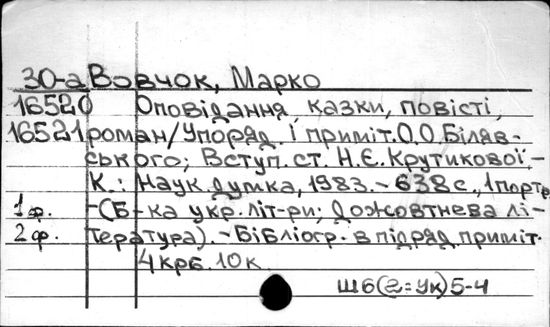 30-а Вовчок, Марко
16520 Оповідання, казки, повісті,
16521 роман/Упоряд. і приміт. О.О.Біляв-
ського; Вступ. ст. Н.Є.Крутикової,-
К.: Наук. думка, 1983.-638с., 1портр.
1ф. -(Б-ка укр. літ-ри; Дожовтнева лі-
2ф. тература).-Бібліогр. в підряд. приміт.
4крб. 10к.
Ш6(2=Ук)5-4